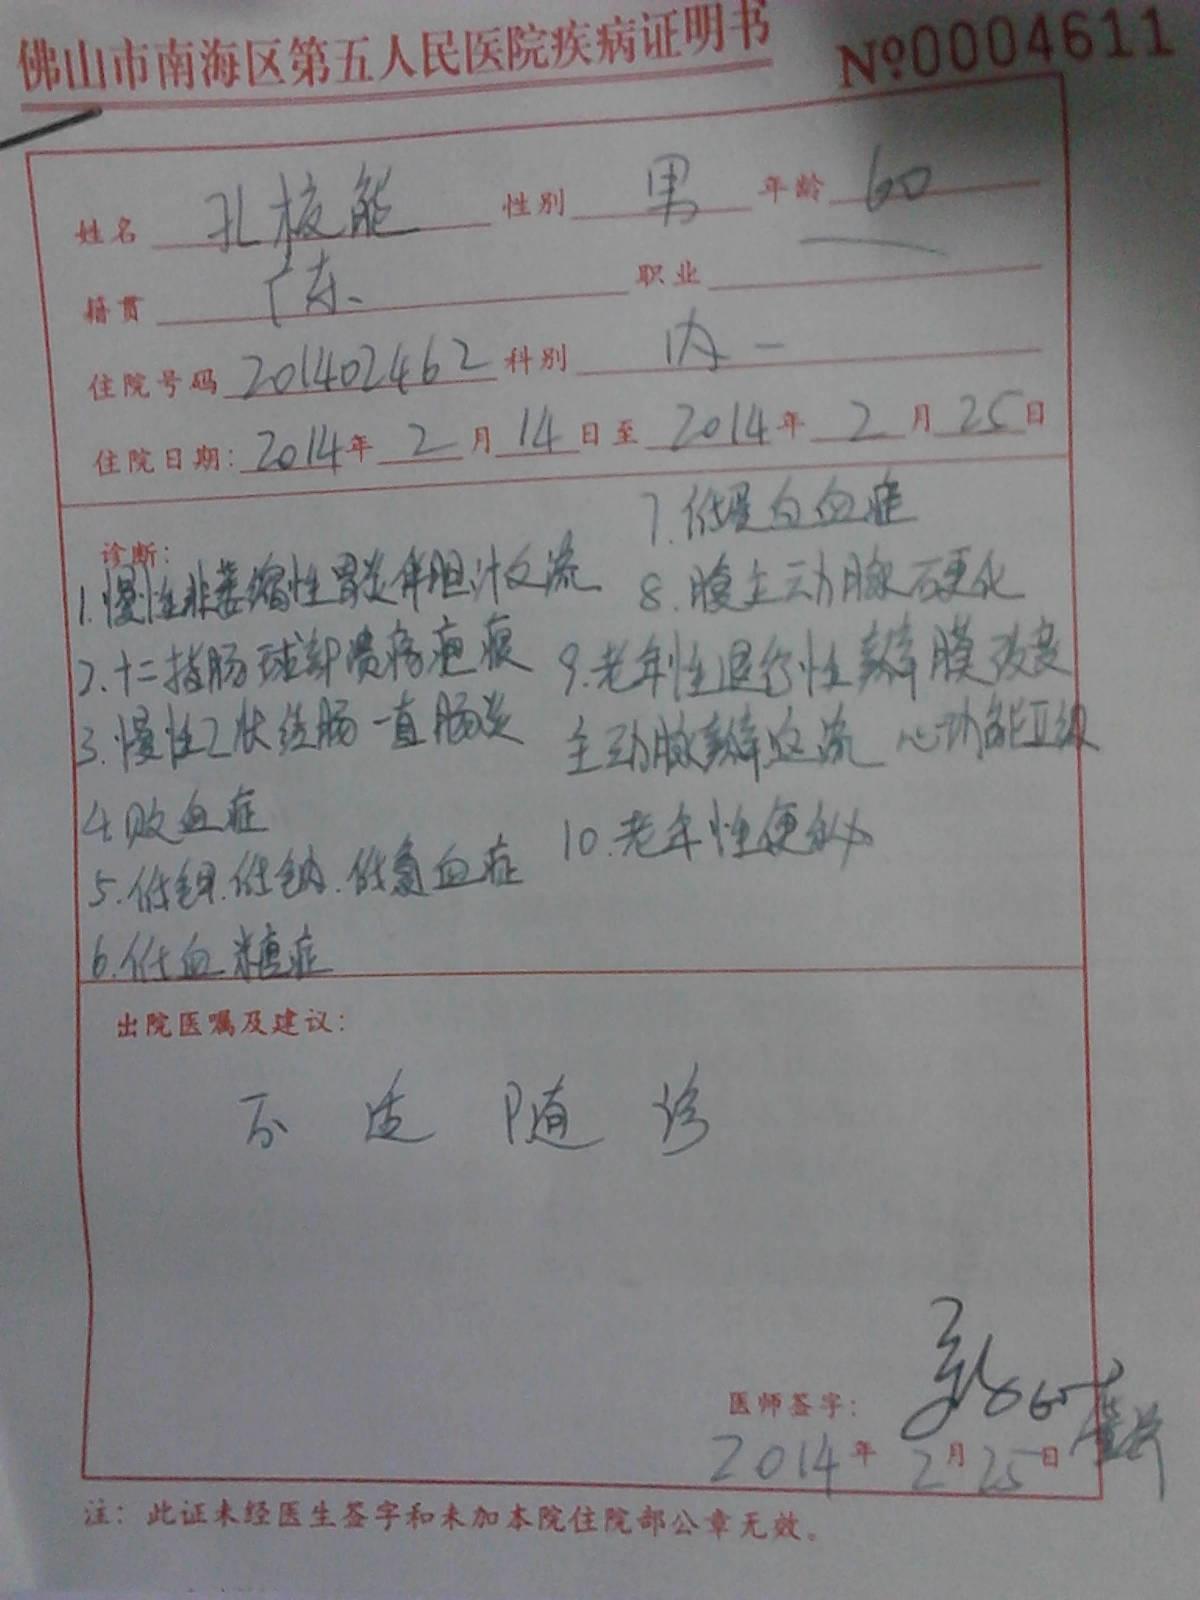 佛山市南海区第五人民医院疾病证明书 №0004611
姓名 孔棱能 性别 男 年龄 60
籍贯 广东 职业
住院号码 201402462 科别 内一
住院日期: 2014年 2月 14日至 2014年 2月 25日
诊断:
1. 慢性非萎缩性胃炎伴胆汁反流
2. 十二指肠球部溃疡疤痕
3. 慢性乙状结肠—直肠炎
4. 败血症
5. 低钾.低钠.低氯血症
6. 低血糖症
7. 低蛋白血症
8. 腹主动脉硬化
9. 老年性退行性瓣膜改变
主动脉瓣返流 心功能Ⅱ级
10. 老年性便秘
出院医嘱及建议:
不适随诊
医师签字:
2014年 2月 25日
注: 此证未经医生签字和未加本院住院部公章无效。